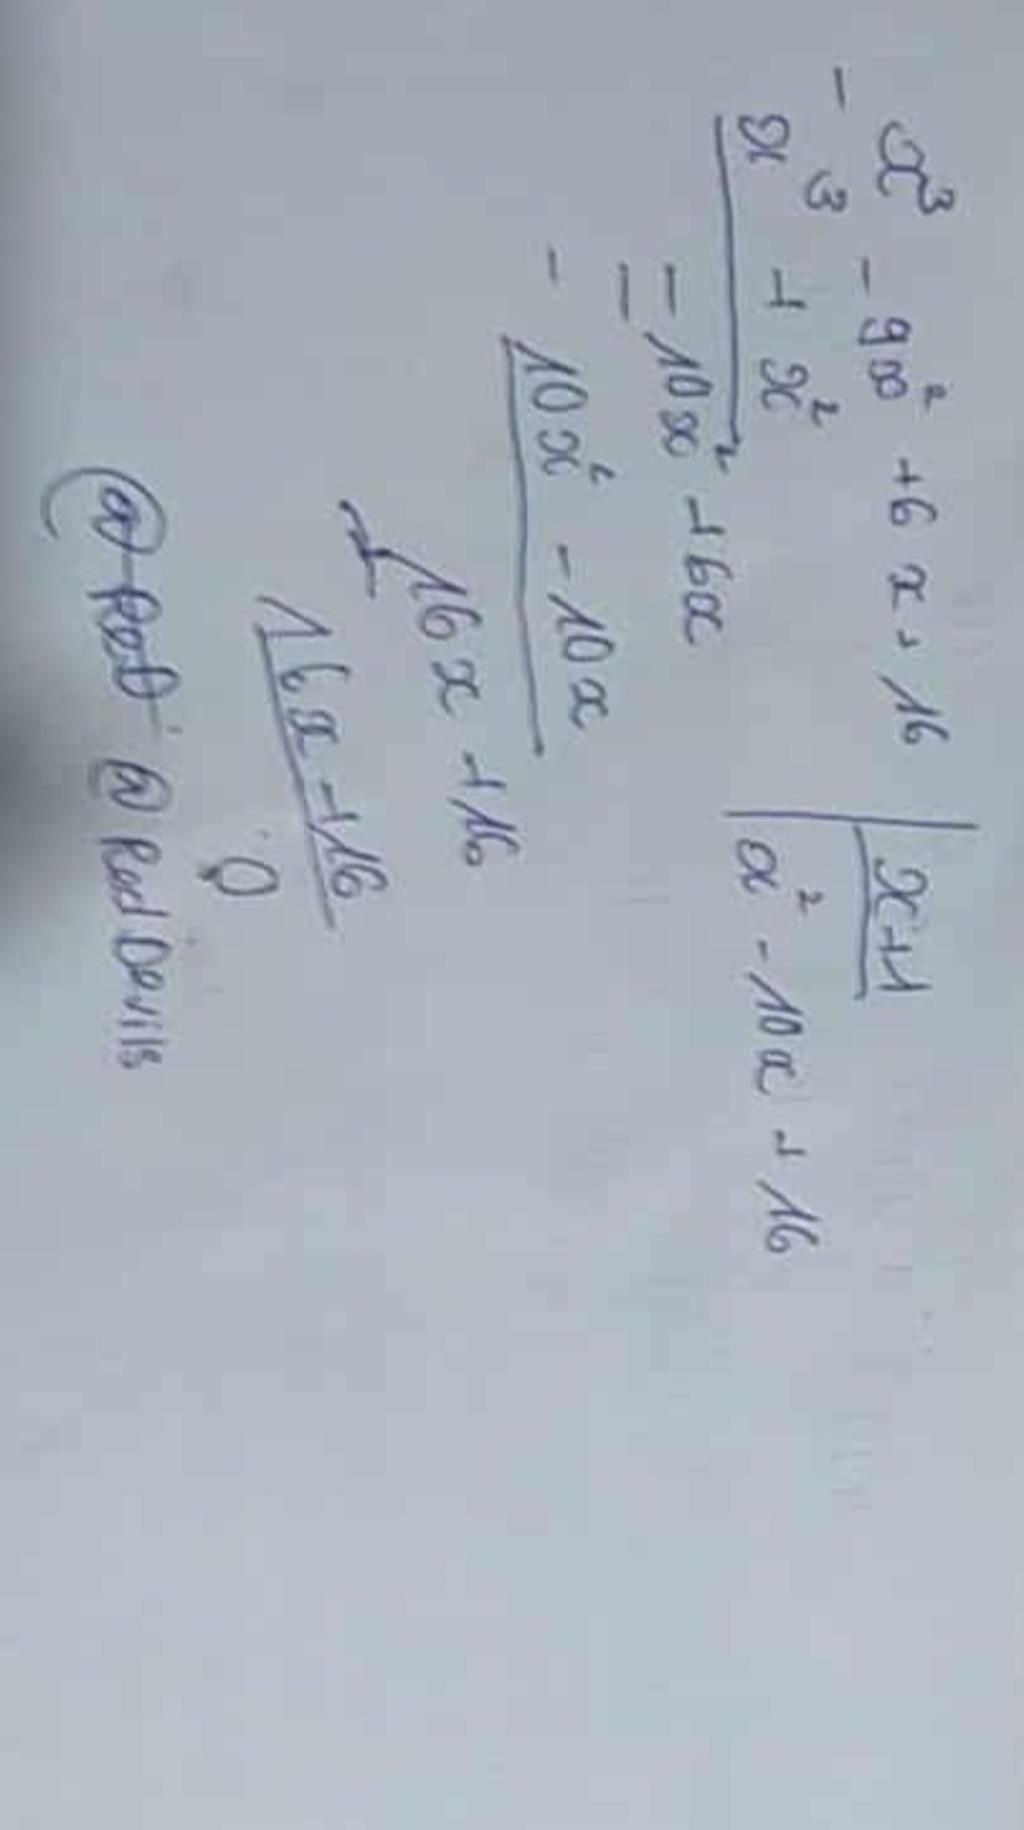 x³ - 9x² + 6x + 16 | x+1
- x³ + x² | x² - 10x + 16
- 10x² + 6x
- - 10x² - 10x
16x + 16
- 16x + 16
0
@ Red Devils